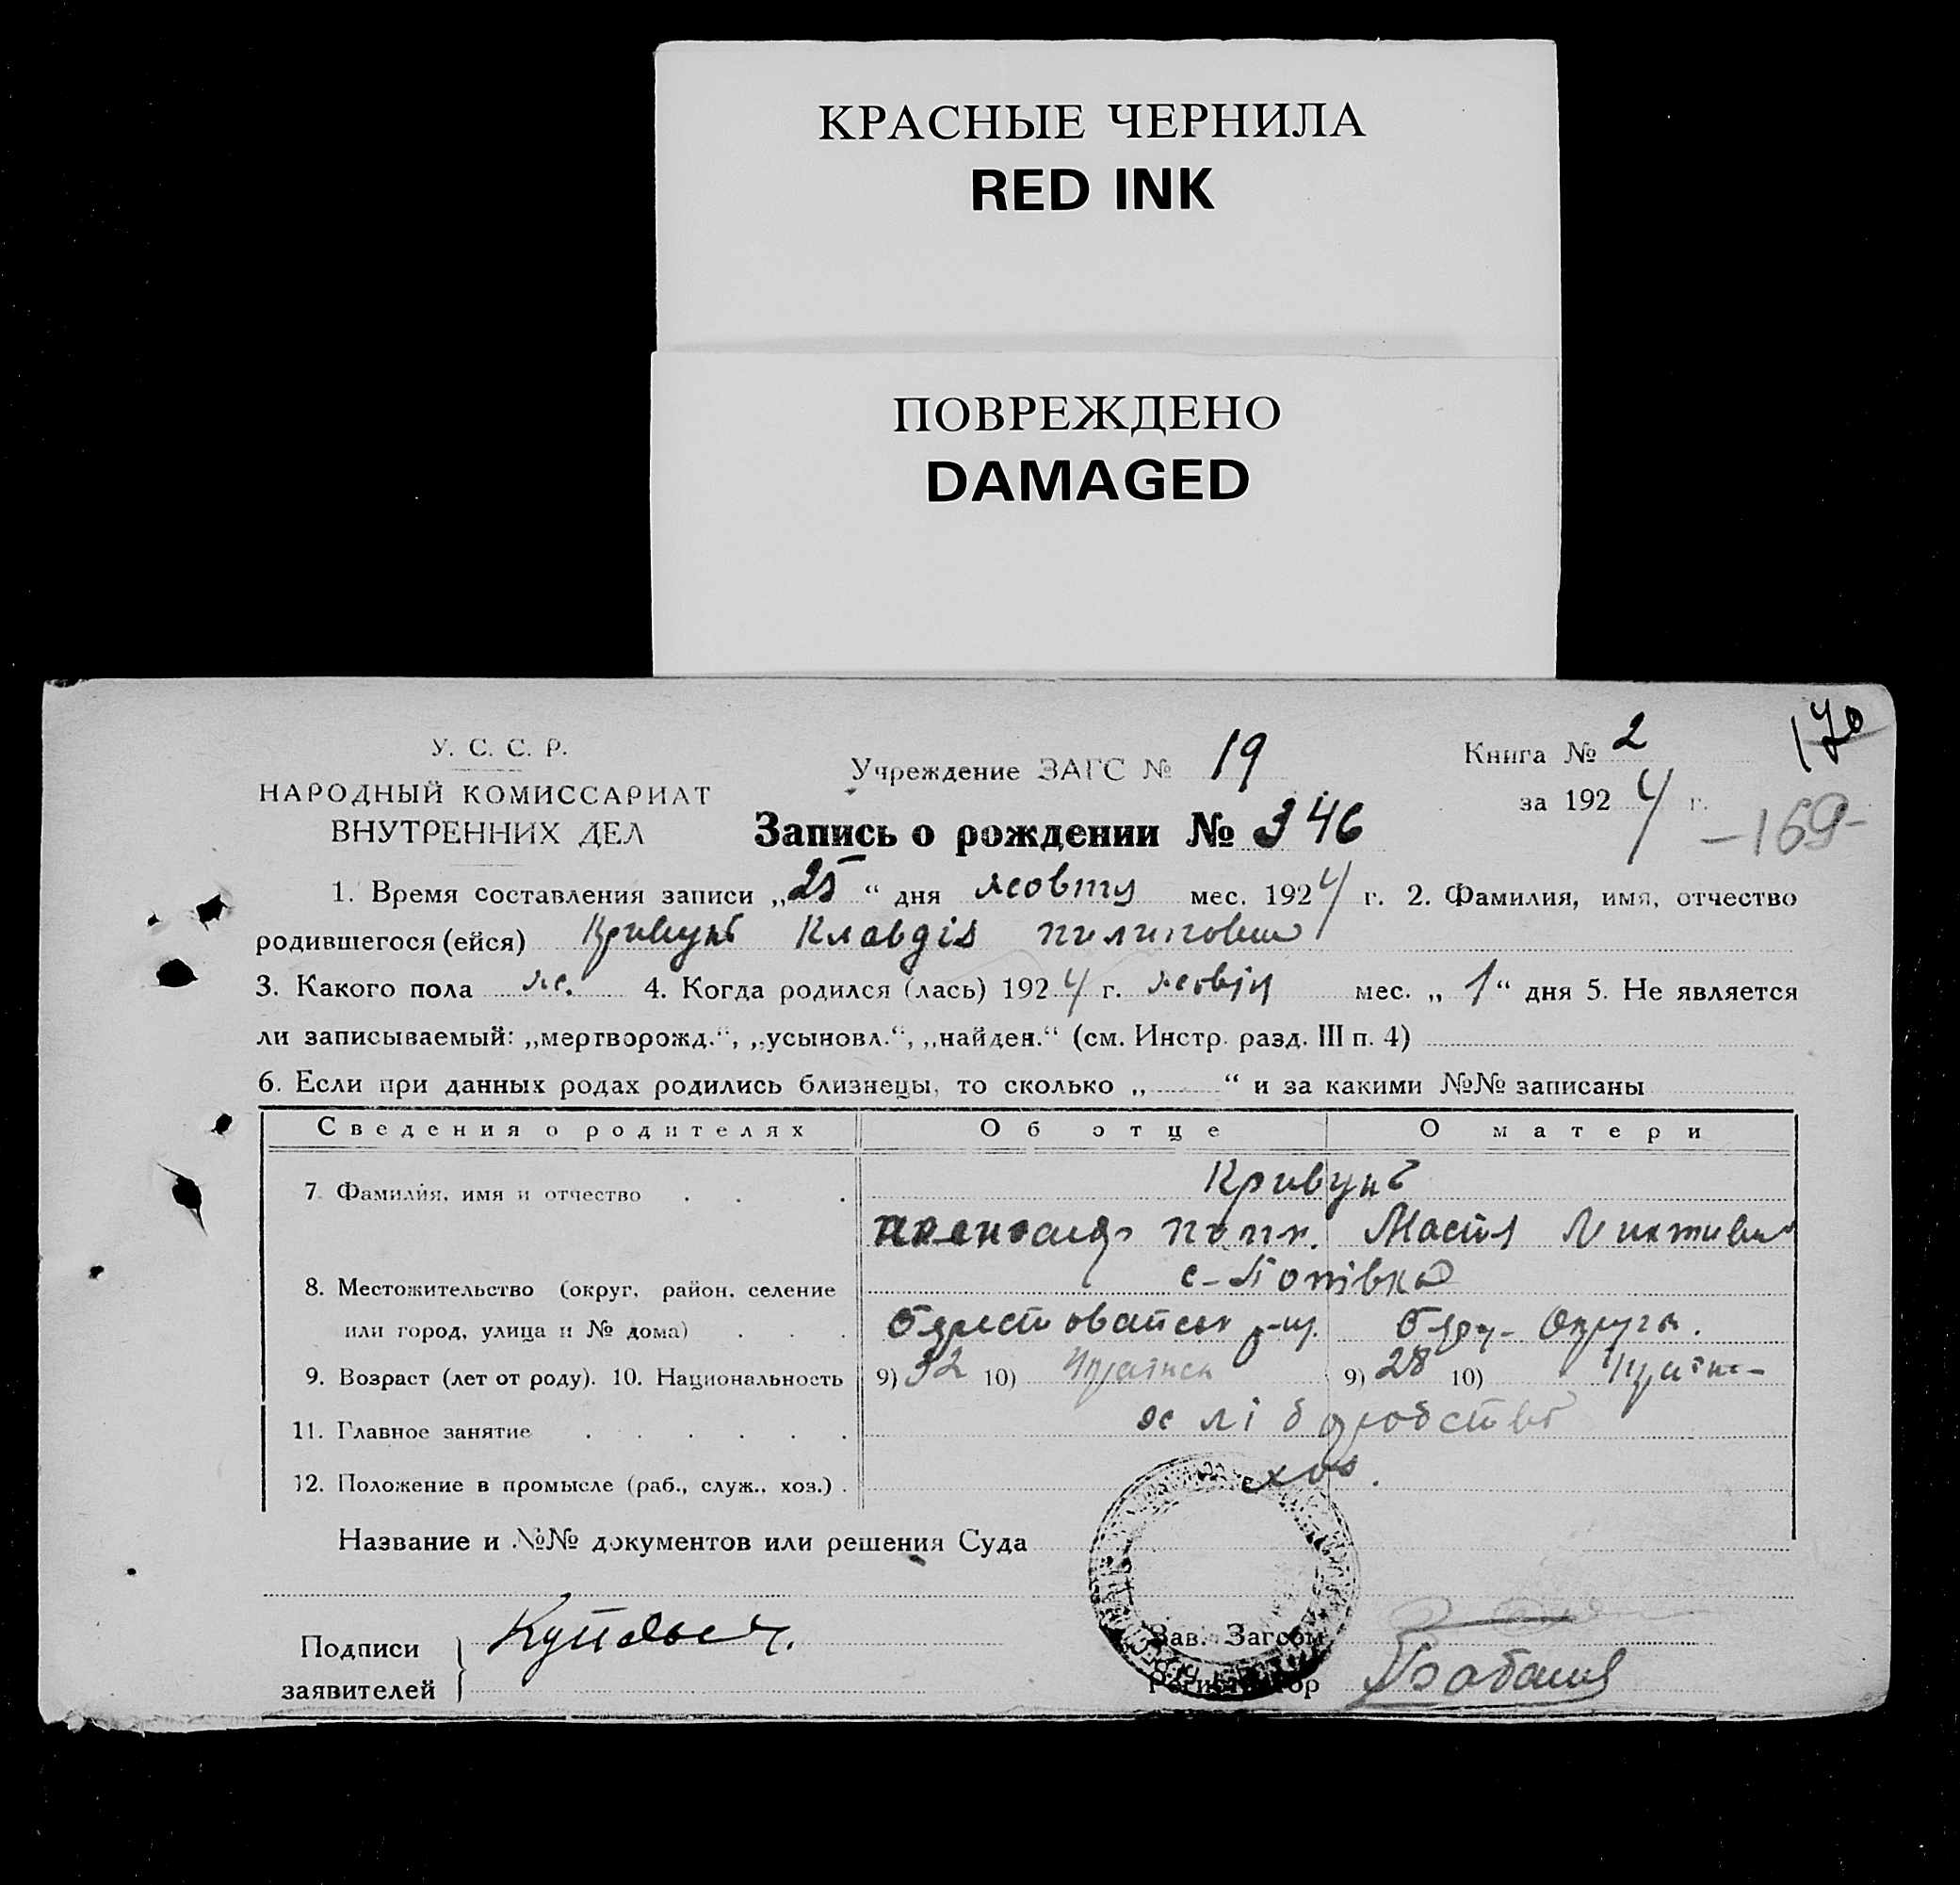 КРАСНЫЕ ЧЕРНИЛА
RED INK
ПОВРЕЖДЕНО
DAMAGED
У. С. С. Р.
НАРОДНЫЙ КОМИССАРИАТ
ВНУТРЕННИХ ДЕЛ
Учреждение ЗАГС № 19
Книга № 2
170
за 1924 г.
-169-
Запись о рождении № 346
1. Время составления записи „25“ дня жовтня мес. 1924 г. 2. Фамилия, имя, отчество
родившегося (ейся) Кривунь Клавдія
3. Какого пола ж. 4. Когда родился (лась) 1924 г. жовтн мес. „1“ дня 5. Не является
ли записываемый: „мертворожд.“, „усыновл.“, „найден.“ (см. Инстр. разд. III п. 4)
6. Если при данных родах родились близнецы, то сколько „ “ и за какими №№ записаны
Сведения о родителях Об отце О матери
7. Фамилия, имя и отчество Кривунь
8. Местожительство (округ, район, селение
или город, улица и № дома)
9. Возраст (лет от роду). 10. Национальность 9) 32 10) 9) 28 10)
11. Главное занятие хліборобство
12. Положение в промысле (раб., служ., хоз.) хоз.
Название и №№ документов или решения Суда
Подписи
заявителей
Зав. Загсом
Регистратор